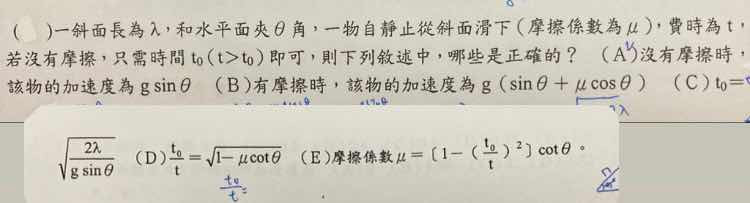 (　)一斜面長為λ，和水平面夾θ角，一物自靜止從斜面滑下（摩擦係數為μ），費時為t，
若沒有摩擦，只需時間 t₀（t>t₀）即可，則下列敘述中，哪些是正確的？ (A)沒有摩擦時，
該物的加速度為 g sinθ (B)有摩擦時，該物的加速度為 g（sinθ＋μcosθ） (C) t₀=
√(2λ/(g sinθ)) (D) t₀/t = √(1−μcotθ) (E)摩擦係數μ=〔1−(t₀/t)²〕cotθ。
t₀/t=